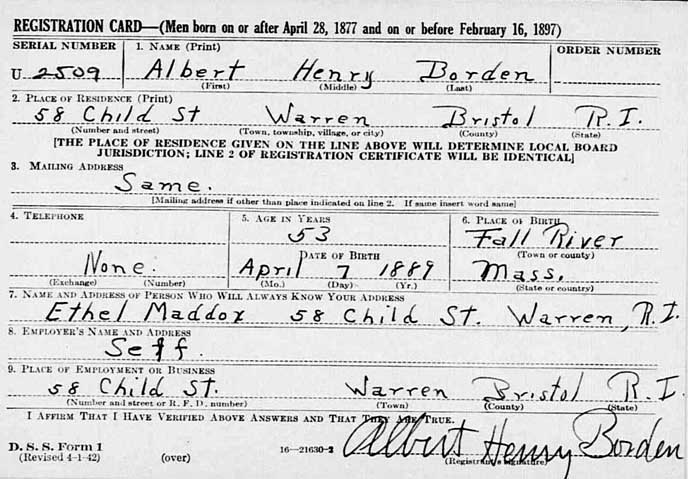 REGISTRATION CARD—(Men born on or after April 28, 1877 and on or before February 16, 1897)
SERIAL NUMBER 1. NAME (Print) ORDER NUMBER
U 2509 Albert Henry Borden
(First) (Middle) (Last)
2. PLACE OF RESIDENCE (Print)
58 Child St Warren Bristol R.I.
(Number and street) (Town, township, village, or city) (County) (State)
[THE PLACE OF RESIDENCE GIVEN ON THE LINE ABOVE WILL DETERMINE LOCAL BOARD
JURISDICTION; LINE 2 OF REGISTRATION CERTIFICATE WILL BE IDENTICAL]
3. MAILING ADDRESS
Same.
[Mailing address if other than place indicated on line 2. If same insert word same]
4. TELEPHONE 5. AGE IN YEARS 6. PLACE OF BIRTH
53 Fall River
DATE OF BIRTH (Town or county)
None. April 7 1889 Mass.
(Exchange) (Number) (Mo.) (Day) (Yr.) (State or country)
7. NAME AND ADDRESS OF PERSON WHO WILL ALWAYS KNOW YOUR ADDRESS
Ethel Maddox 58 Child St. Warren, R.I.
8. EMPLOYER'S NAME AND ADDRESS
Self.
9. PLACE OF EMPLOYMENT OR BUSINESS
58 Child St. Warren Bristol R.I.
(Number and street or R. F. D. number) (Town) (County) (State)
I AFFIRM THAT I HAVE VERIFIED ABOVE ANSWERS AND THAT THEY ARE TRUE.
D. S. S. Form 1
(Revised 4-1-42) (over) 16—21630-2 Albert Henry Borden
(Registrant's signature)